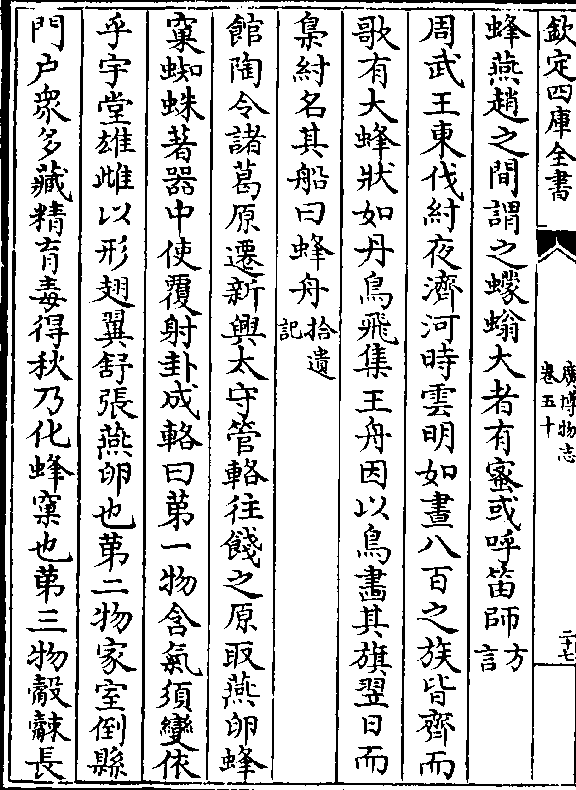 欽定四庫全書
廣博物志
卷五十
二十七
蜂燕趙之間謂之蠓螉大者有蜜或呼笛師方言
周武王東伐紂夜濟河時雲明如晝八百之族皆齊而
歌有大蜂狀如丹鳥飛集王舟因以鳥畫其旗翌日而
梟紂名其船曰蜂舟拾遺記
館陶令諸葛原遷新興太守管輅往餞之原取燕卵蜂
窠蜘蛛著器中使覆射卦成輅曰第一物含氣須變依
乎宇堂雄雌以形翅翼舒張燕卵也第二物家室倒縣
門户衆多藏精育毒得秋乃化蜂窠也第三物觳觫長